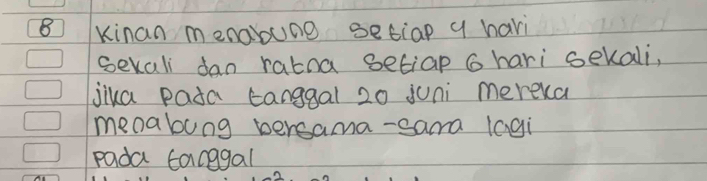 8 Kinan menabung setiap 4 hari
sekali dan ratna setiap 6 hari sekali,
jika pada tanggal 20 juni mereka
menabung bersama-sama lagi
pada tanggal